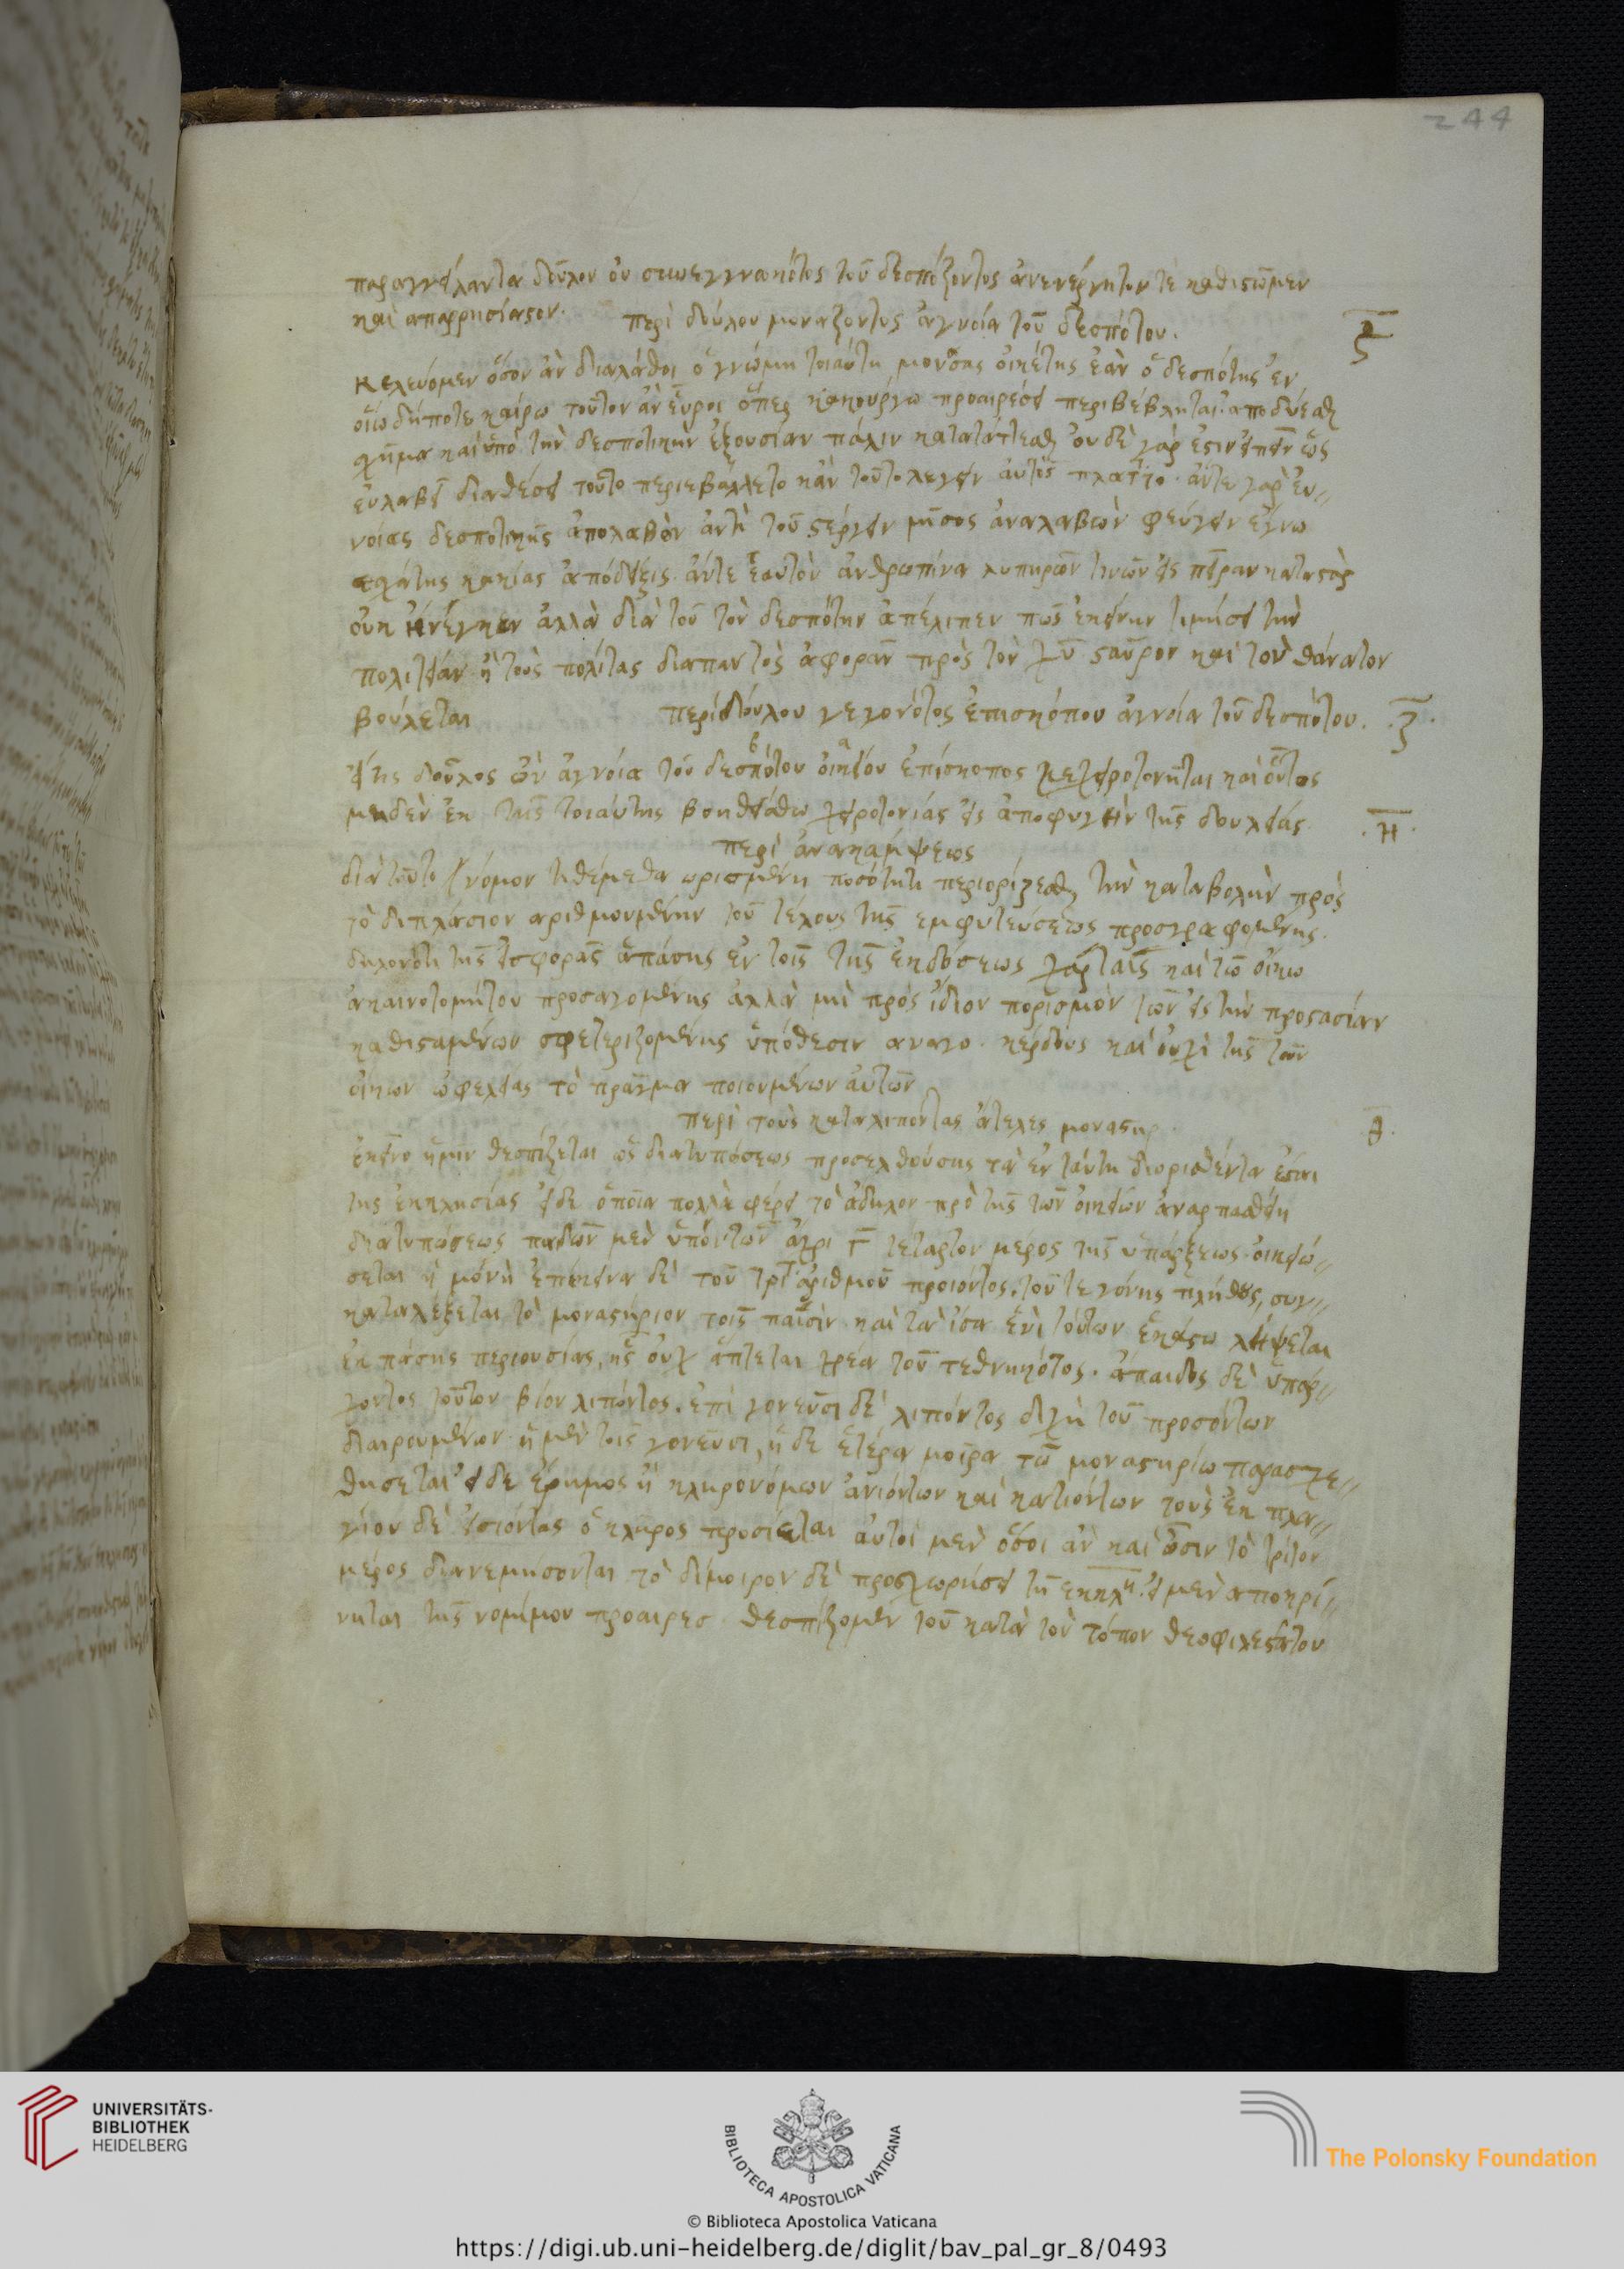 244
παραγγείλαντα δοῦλον οὐ συνεγνωκότος τοῦ δεσπόζοντος ἀνενέργητον τὲ καθιστῶμεν
καὶ απαρρησίαστον. περὶ δούλου μοναζοντος ἀγνοία τοῦ δεσπότου.
ϛ
κελεύομεν ὅσον ἂν διαλάθοι ὁ γνώμη τοιαύτη μονάσας οἰκέτης ἐὰν ὁ δεσπότης ἐν
οἵω δήποτε καίρω τοῦτον ἀν εὕροι ὅπερ κακούργω προαιρέσει περιβέβληται αποδύεσθαι
χῆμα καὶ ὑπὸ τὴν δεσποτικὴν ἐξουσίαν πάλιν κατατάττεσθαι ουδὲ γάρ ἐστιν ειπεῖν ὡς
εὐλαβεῖ διαθέσει τοῦτο περιεβάλλετο κἀν τοῦτο λεγειν αὐτὸς πλαττο. ἄντε γὰρ ἐυ-
νοίας δεσποτικῆς ἀπολαβὼν ἀντὶ τοῦ στέργειν μῖσος ἀναλαβων φεύγειν ἔγνω
εσχάτης κακίας ἀπόδειξις. ἄντε ἑαυτὸν ἀνθρωπίνα λυπηρῶν τινῶν εἰς πεῖραν καταστὰς
ουκ ἤνεγκεν ἀλλὰ διὰ τοῦ τὸν δεσπότην ἀπέλιπεν πῶς ἐκείνην τιμήσει τὴν
πολιτείαν ἡ τοὺς πολίτας διαπαντὸς ἀφορᾶν πρὸς τὸν χυ σταῦρον καὶ τὸν θάνατον
βούλεται περὶ δούλου γεγονότος ἐπισκόπου ἀγνοία τοῦ δεσπότου.
.ζ.
εἴ τις δοῦλος ὢν ἀγνοία τοῦ δεσπότου οἰκείου ἐπίσκοπος κεχειροτονηται καὶ οὗτος
μηδὲν ἐκ τῆς τοιαύτης βοηθείσθω χειροτονίας εἰς ἀποφυγὴν τῆς δουλείας
.η.
περὶ ἀνακαμψεως
διὰ τοῦτο νόμον τιθέμεθα ωρισμένη ποσότητι περιορίζεσθαι τὴν καταβολὴν πρὸς
τὸ διπλάσιον αριθμουμένην τοῦ τέλους τῆς εμφυτεύσεως προσγραφομένης.
δηλονότι τῆς εἰσφορᾶς ἁπάσης εν τοῖς τῆς ἐκδόσεως χάρταις καὶ τῶ οἴκω
ἀκαινοτομήτου προσαγομένης ἀλλὰ μὴ πρὸς ἴδιον πορισμὸν τῶν εἰς τὴν προστασίαν
καθισταμένων σφετεριζομένης ὑπόθεσιν αναγο. κέρδους καὶ οὐχὶ τῆς τῶν
οἴκων ὠφελείας τὸ πρᾶγμα ποιουμένων αὐτῶν
περὶ τοὺς καταλιπόντας ἀτελες μοναστηρ.
θ.
ἐκεῖνο ἡμῖν θεσπίζεται ὡς διατυπόσεως προσελθούσης τὰ ἐν τάυτη διορισθέντα ἔσται
τῆς ἐκκλησίας εἰ δε ὁποῖα πολλὰ φέρει τὸ ἄδηλον πρὸ τῆς τῶν οἰκείων ἀναρπασθείη
διατυπώσεως παίδων μεν ὑπόντων ἄχρι Γ τέταρτον μέρος τῆς ὑπάρξεως οικειώ-
σεται ἡ μόνὴ ἐπέκεινα δὲ τοῦ τριτ ἀριθμοῦ προιόντος. τοῦ τε γόνης πλήθους, συγ-
καταλέξεται τὸ μοναστήριον τοῖς παισὶν καὶ τὰ ἴσα ἑνὶ τούτων ἑκάστω λήψεται
ἐκ πάσης περιουσίας, ἧς ουχ ἅπτεται χρέα τοῦ τεθνηκότος. ἄπαιδος δὲ ὑπάρ-
χοντος τοῦτον βίον λιπόντος. ἐπὶ γονεῦσι δὲ λιπόντος διχῆ τοῦ προσόντων
διαιρουμένων ἡ μὲν τοῖς γονεῦσι, ἡ δε ἑτέρα μοῖρα τῶ μοναστηρίω παρασχε-
θήσεται εἰ δε ἐρημος ἡ κληρονόμων ἀνιόντων καὶ κατιόντων τοὺς ἐκ πλα-
γίου δὲ εἰσιόντας ὁ κλῆρος προσίεται αὐτοὶ μεν ὅσοι ἂν καὶ ὦσιν τὸ τρίτον
μέρος διανεμήσονται τὸ δίμοιρον δὲ προσχωρήσει τῆ εκκλη. εἰ μεν αποκρί-
νηται τῆς νομίμου προαιρεσ θεσπίζομεν τοῦ κατὰ τὸν τόπον θεοφιλεστάτου
UNIVERSITÄTS-
BIBLIOTHEK
HEIDELBERG
BIBLIOTECA APOSTOLICA VATICANA
The Polonsky Foundation
© Biblioteca Apostolica Vaticana
https://digi.ub.uni-heidelberg.de/diglit/bav_pal_gr_8/0493